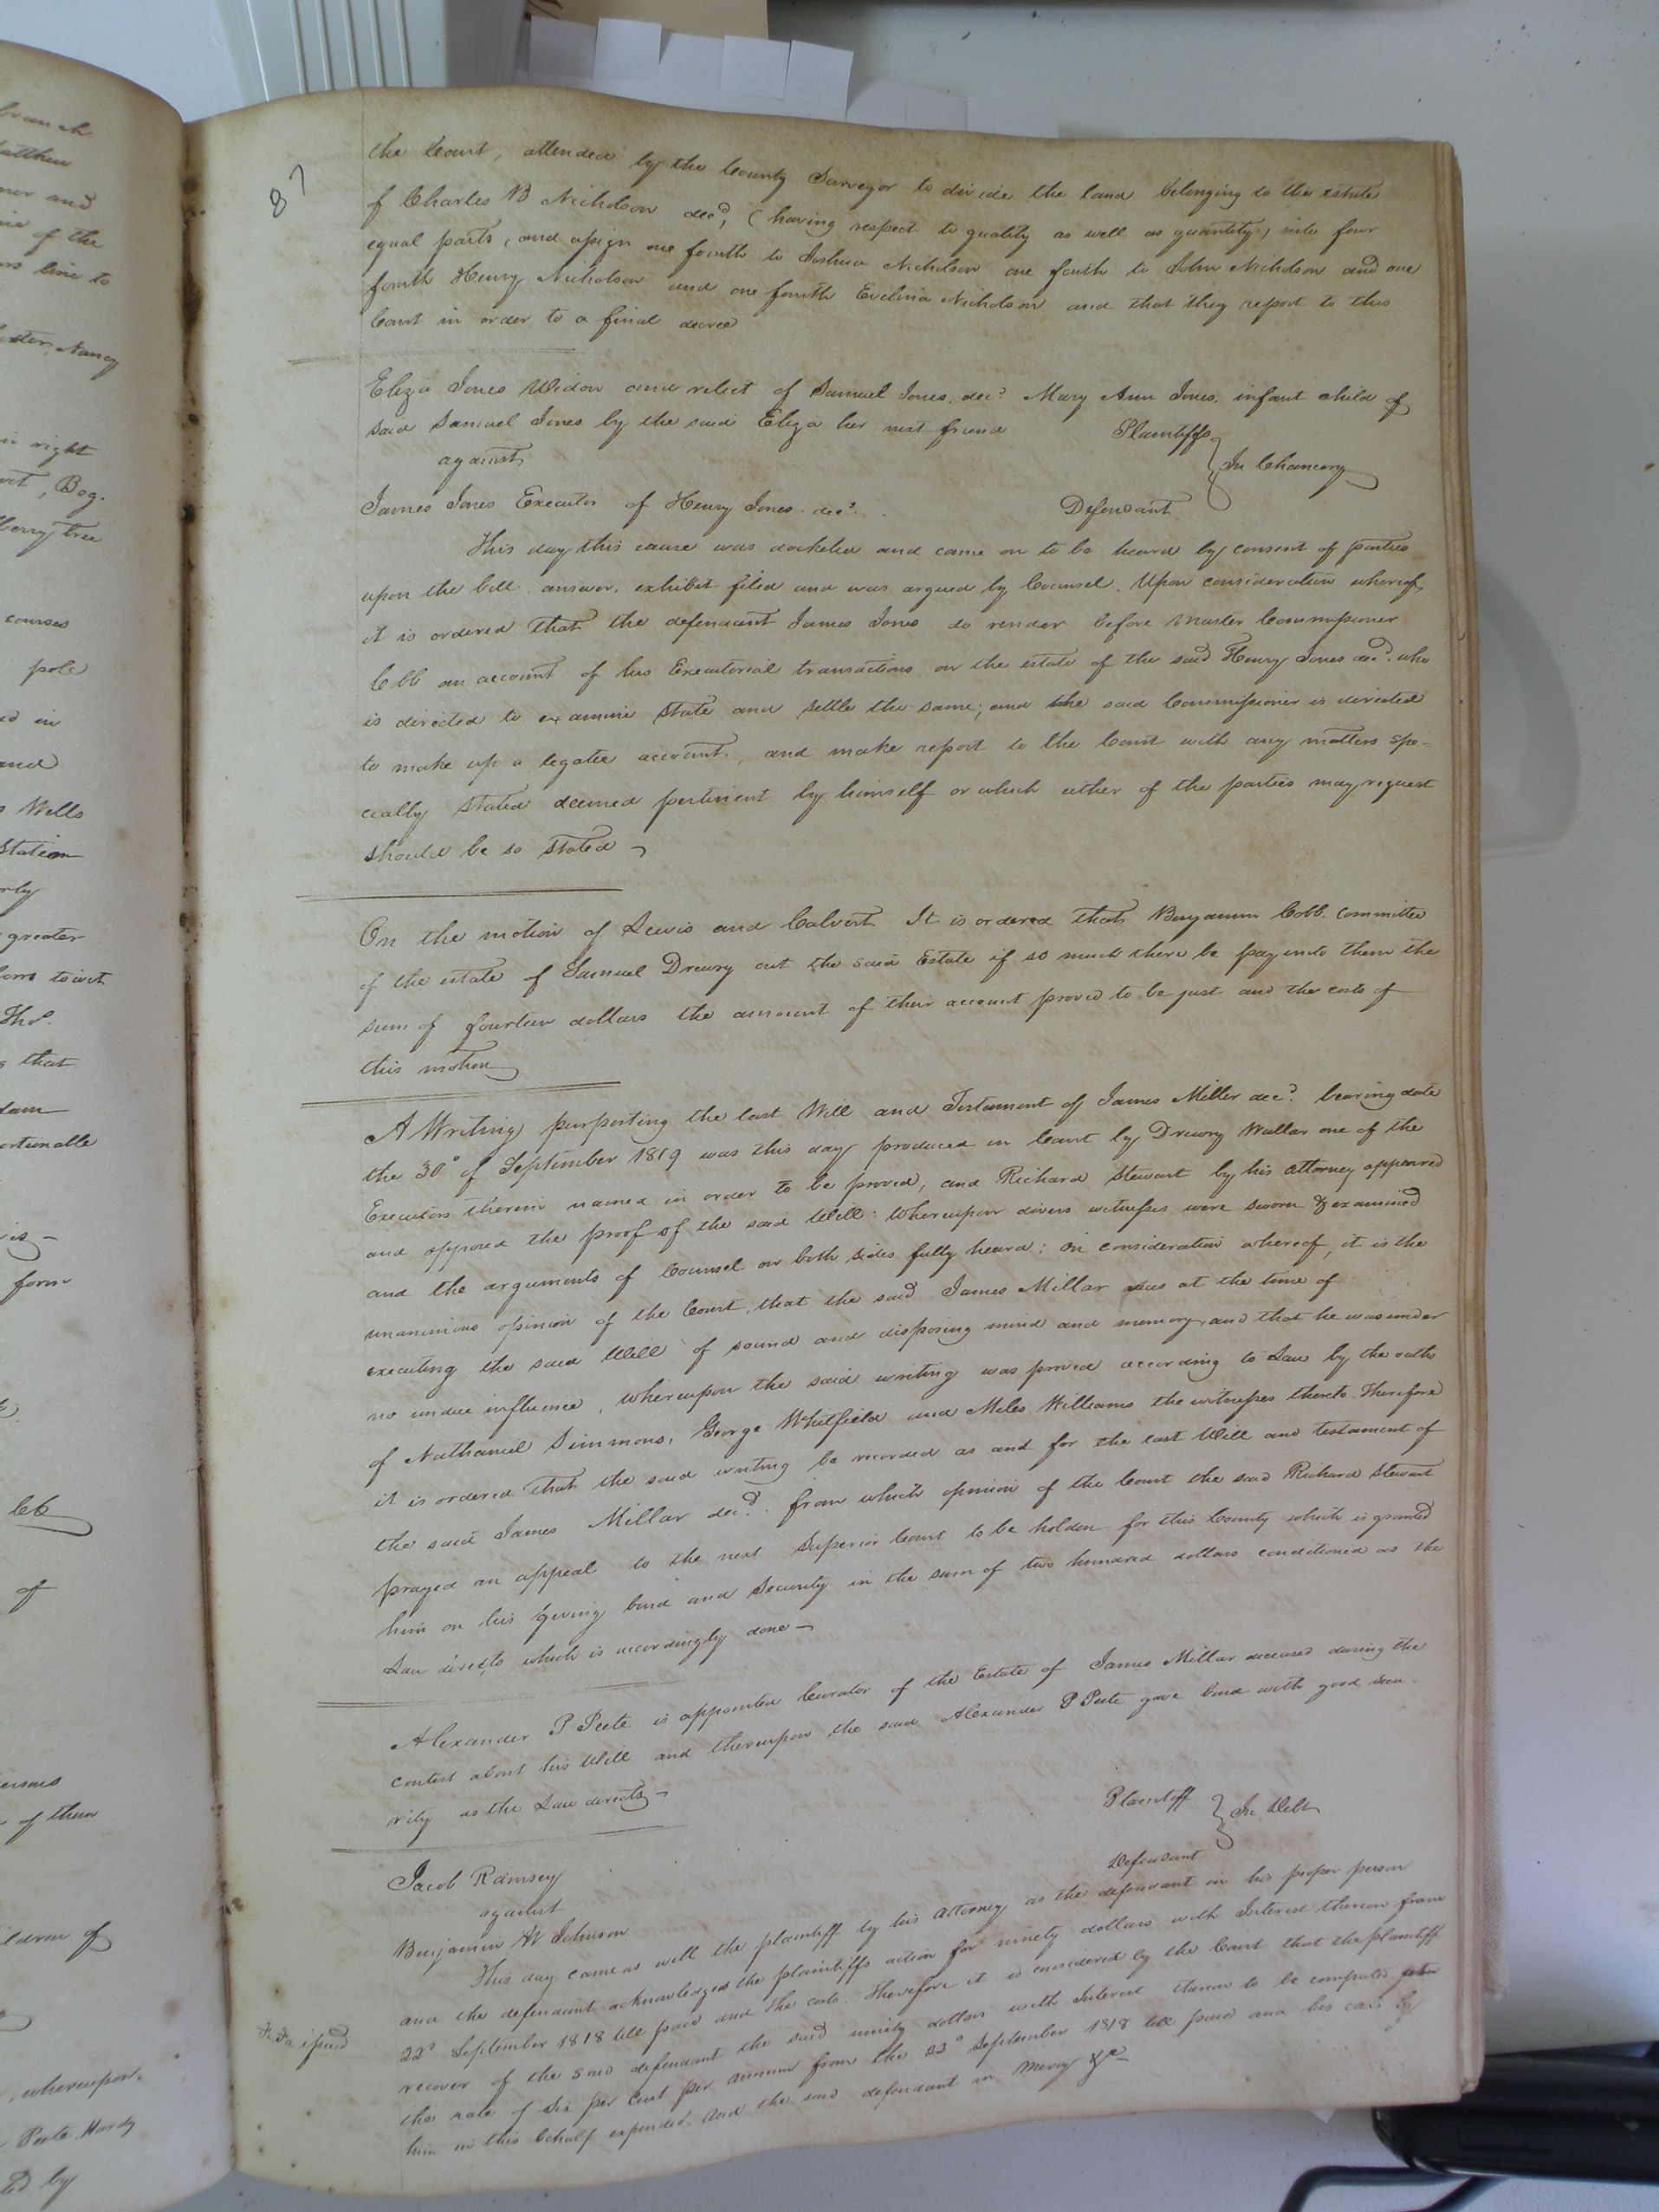 87
the Court, attended by the County Surveyor to divide the land belonging to the estate
of Charles B Nicholson decd, (having respect to quality as well as quantity) into four
equal parts, and assign one fourth to Joshua Nicholson one fourth to John Nicholson and one
fourth Henry Nicholson and one fourth Evelina Nicholson and that they report to this
Court in order to a final decree
Eliza Jones Widow and relict of Samuel Jones, decd Mary Ann Jones, infant child of
said Samuel Jones by the said Eliza her next friend Plaintiffs
against In Chancery
James Jones Executor of Henry Jones decd. Defendant
This day this cause was docketed and came on to be heard by consent of parties
upon the bill, answer, exhibit filed and was argued by Counsel. Upon consideration whereof,
it is ordered that the defendant James Jones do render before Master Commissioner
Cobb an account of his Executorial transactions on the estate of the said Henry Jones decd. who
is directed to examine state and settle the same; and the said Commissioner is directed
to make up a legatee account, and make report to the Court with any matters spe-
cially stated deemed pertinent by himself or which either of the parties may request
should be so stated
On the motion of Lewis and Calvert It is ordered that Benjamin Cobb. Committee
of the estate of Samuel Drewry out the said Estate if so much there be pay unto them the
sum of fourteen dollars the amount of their account proved to be just and the costs of
this motion
A Writing purporting the last Will and Testament of James Miller decd. bearing date
the 30th of September 1819 was this day produced in Court by Drewry Wallar one of the
Executors therein named in order to be proved, and Richard Stewart by his attorney appeared
and opposed the proof of the said Will: Whereupon divers witnesses were sworn & examined
and the arguments of Counsel on both sides fully heard; On consideration whereof, it is the
unanimous opinion of the Court, that the said James Millar was at the time of
executing the said Will of sound and disposing mind and memory, and that he was under
no undue influence, whereupon the said writing was proved according to Law by the oaths
of Nathaniel Simmons, George Whitfield and Miles Williams the witnesses thereto. Therefore
it is ordered that the said writing be recorded as and for the last Will and testament of
the said James Millar decd. from which opinion of the Court the said Richard Stewart
prayed an appeal to the next Superior Court to be holden for this County which is granted
him on his giving bond and Security in the sum of two hundred dollars conditioned as the
Law directs which is accordingly done
Alexander P Peete is appointed Curator of the Estate of James Millar deceased during the
contest about his Will and thereupon the said Alexander P Peete gave bond with good secu-
rity as the Law directs
Jacob Ramsey Plaintiff
against In Debt
Benjamin W Johnson Defendant
This day came as well the plaintiff by his Attorney as the defendant in his proper person
and the defendant acknowledged the plaintiffs action for ninety dollars with Interest thereon from
22d September 1818 till paid and the costs. Therefore it is considered by the Court that the plaintiff
Fi Fa issued
recover of the said defendant the said ninety dollars with Interest thereon to be computed after
the rate of Six per Cent per annum from the 22d September 1818 till paid and his costs by
him in this behalf expended. And the said defendant in Mercy &c